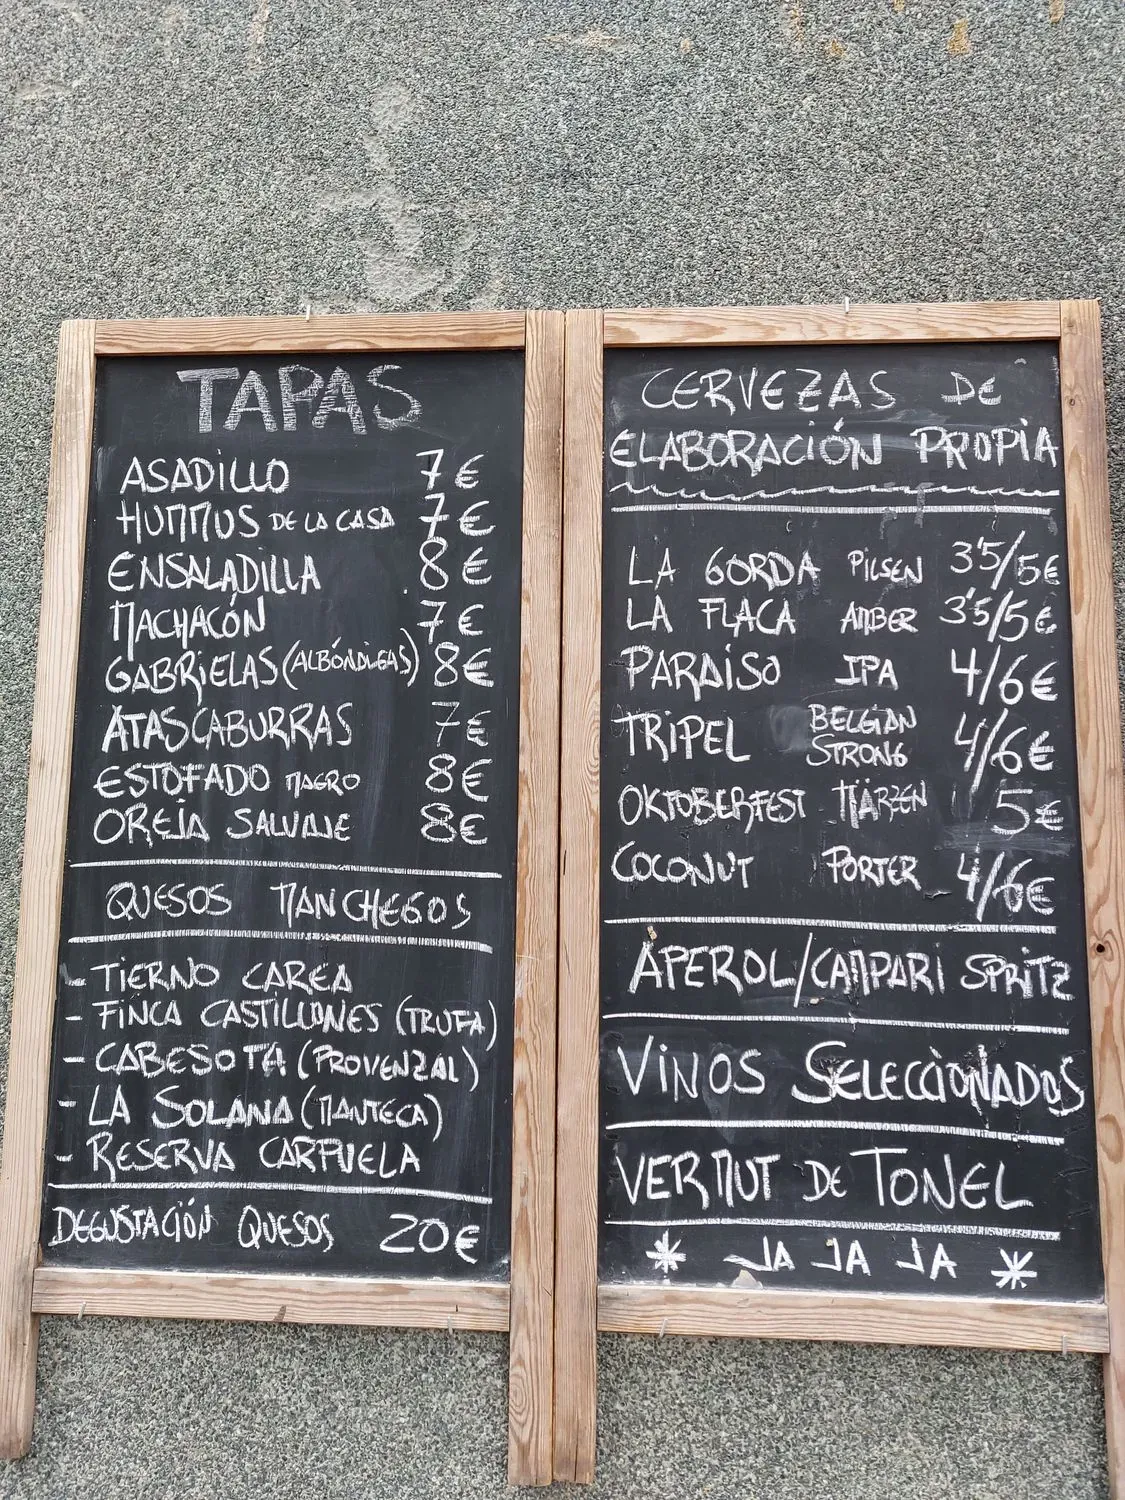 TAPAS
ASADILLO 7€
HUMMUS DE LA CASA 7€
ENSALADILLA 8€
MACHACÓN 7€
GABRIELAS (ALBÓNDIGAS) 8€
ATASCABURRAS 7€
ESTOFADO MAGRO 8€
OREJA SALVAJE 8€
QUESOS MANCHEGOS
- TIERNO CAREA
- FINCA CASTILLONES (TRUFA)
- CABESOTA (PROVENZAL)
- LA SOLANA (MANTECA)
- RESERVA CARPUELA
DEGUSTACIÓN QUESOS 20€
CERVEZAS DE
ELABORACIÓN PROPIA
LA GORDA PILSEN 3'5/5€
LA FLACA AMBER 3'5/5€
PARAISO IPA 4/6€
TRIPEL BELGIAN STRONG 4/6€
OKTOBERFEST MÄRZEN 5€
COCONUT PORTER 4/6€
APEROL/CAMPARI SPRITZ
VINOS SELECCIONADOS
VERMUT DE TONEL
* JA JA JA *